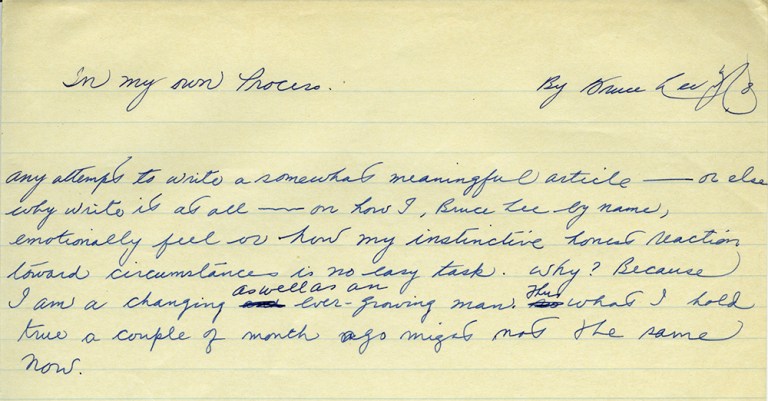 In my own Process.
By Bruce Lee
any attempt to write a somewhat meaningful article — or else
why write it at all — on how I, Bruce Lee by name,
emotionally feel or how my instinctive honest reaction
toward circumstances is no easy task. Why? Because
I am a changing as well as an ever-growing man. Thus what I hold
true a couple of month ago might not the same
now.